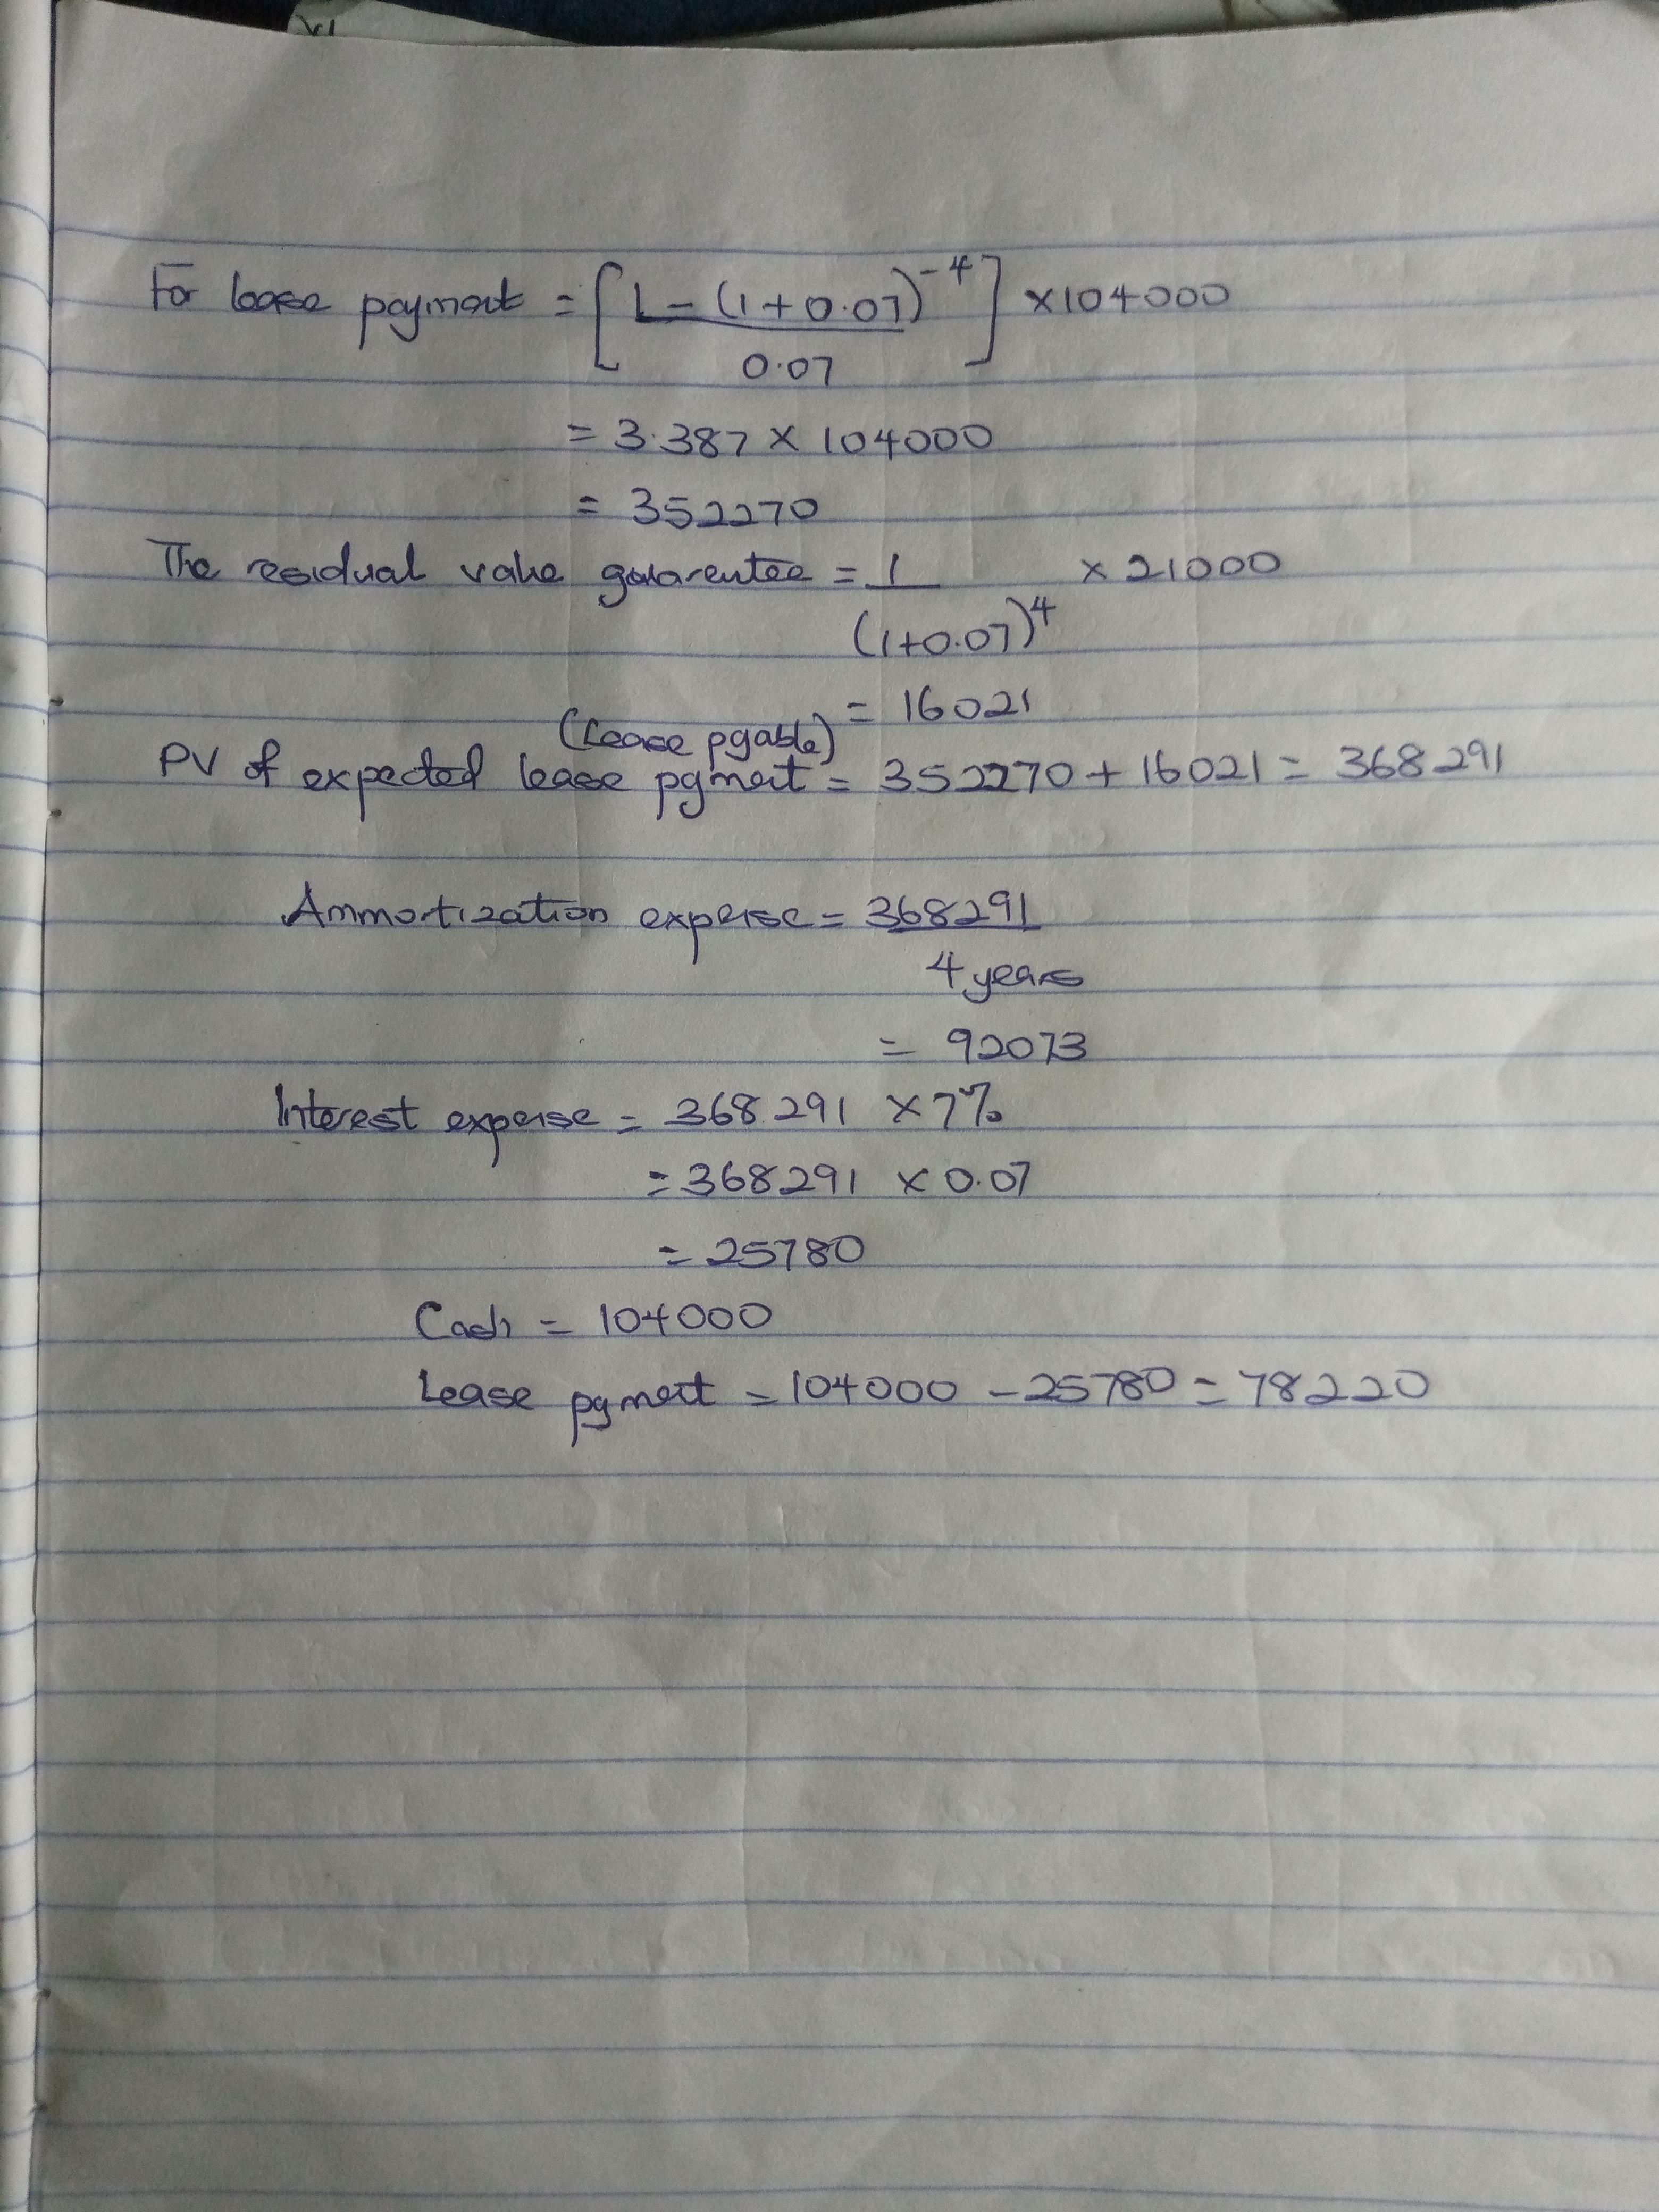 For lease payment = [1 - (1+0.07)^-4 / 0.07] × 104000
= 3.387 × 104000
= 352270
The residual value guarentee = 1 / (1+0.07)^4 × 21000
= 16021
(Lease pyable)
PV of expected lease pyment = 352270 + 16021 = 368291
Ammortization expense = 368291 / 4 years
= 92073
Interest expense = 368291 × 7%
= 368291 × 0.07
= 25780
Cash = 104000
Lease pyment = 104000 - 25780 = 78220